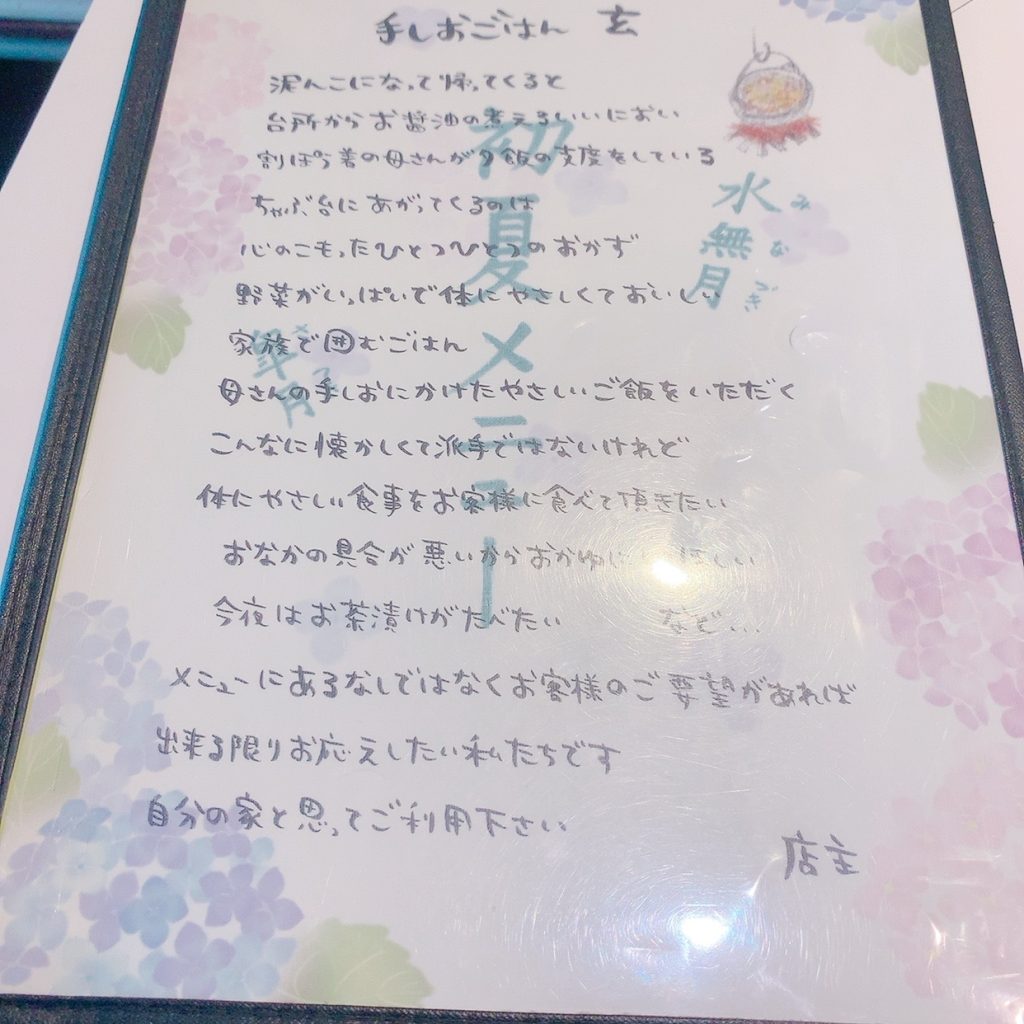 手しおごはん 玄
泥んこになって帰ってくると
台所からお醤油の煮えるいいにおい
割ぽう着の母さんが夕飯の支度をしている
ちゃぶ台にあがってくるのは
心のこもったひとつひとつのおかず
野菜がいっぱいで体にやさしくておいしい
家族で囲むごはん
母さんの手しおにかけたやさしいご飯をいただく
こんなに懐かしくて派手ではないけれど
体にやさしい食事をお客様に食べて頂きたい
おなかの具合が悪いからおかゆに ほしい
今夜はお茶漬けがたべたい など...
メニューにあるなしではなくお客様のご要望があれば
出来る限りお応えしたい私たちです
自分の家と思ってご利用下さい
店主
水無月
みなづき
初夏メニュー
皐月
さつき